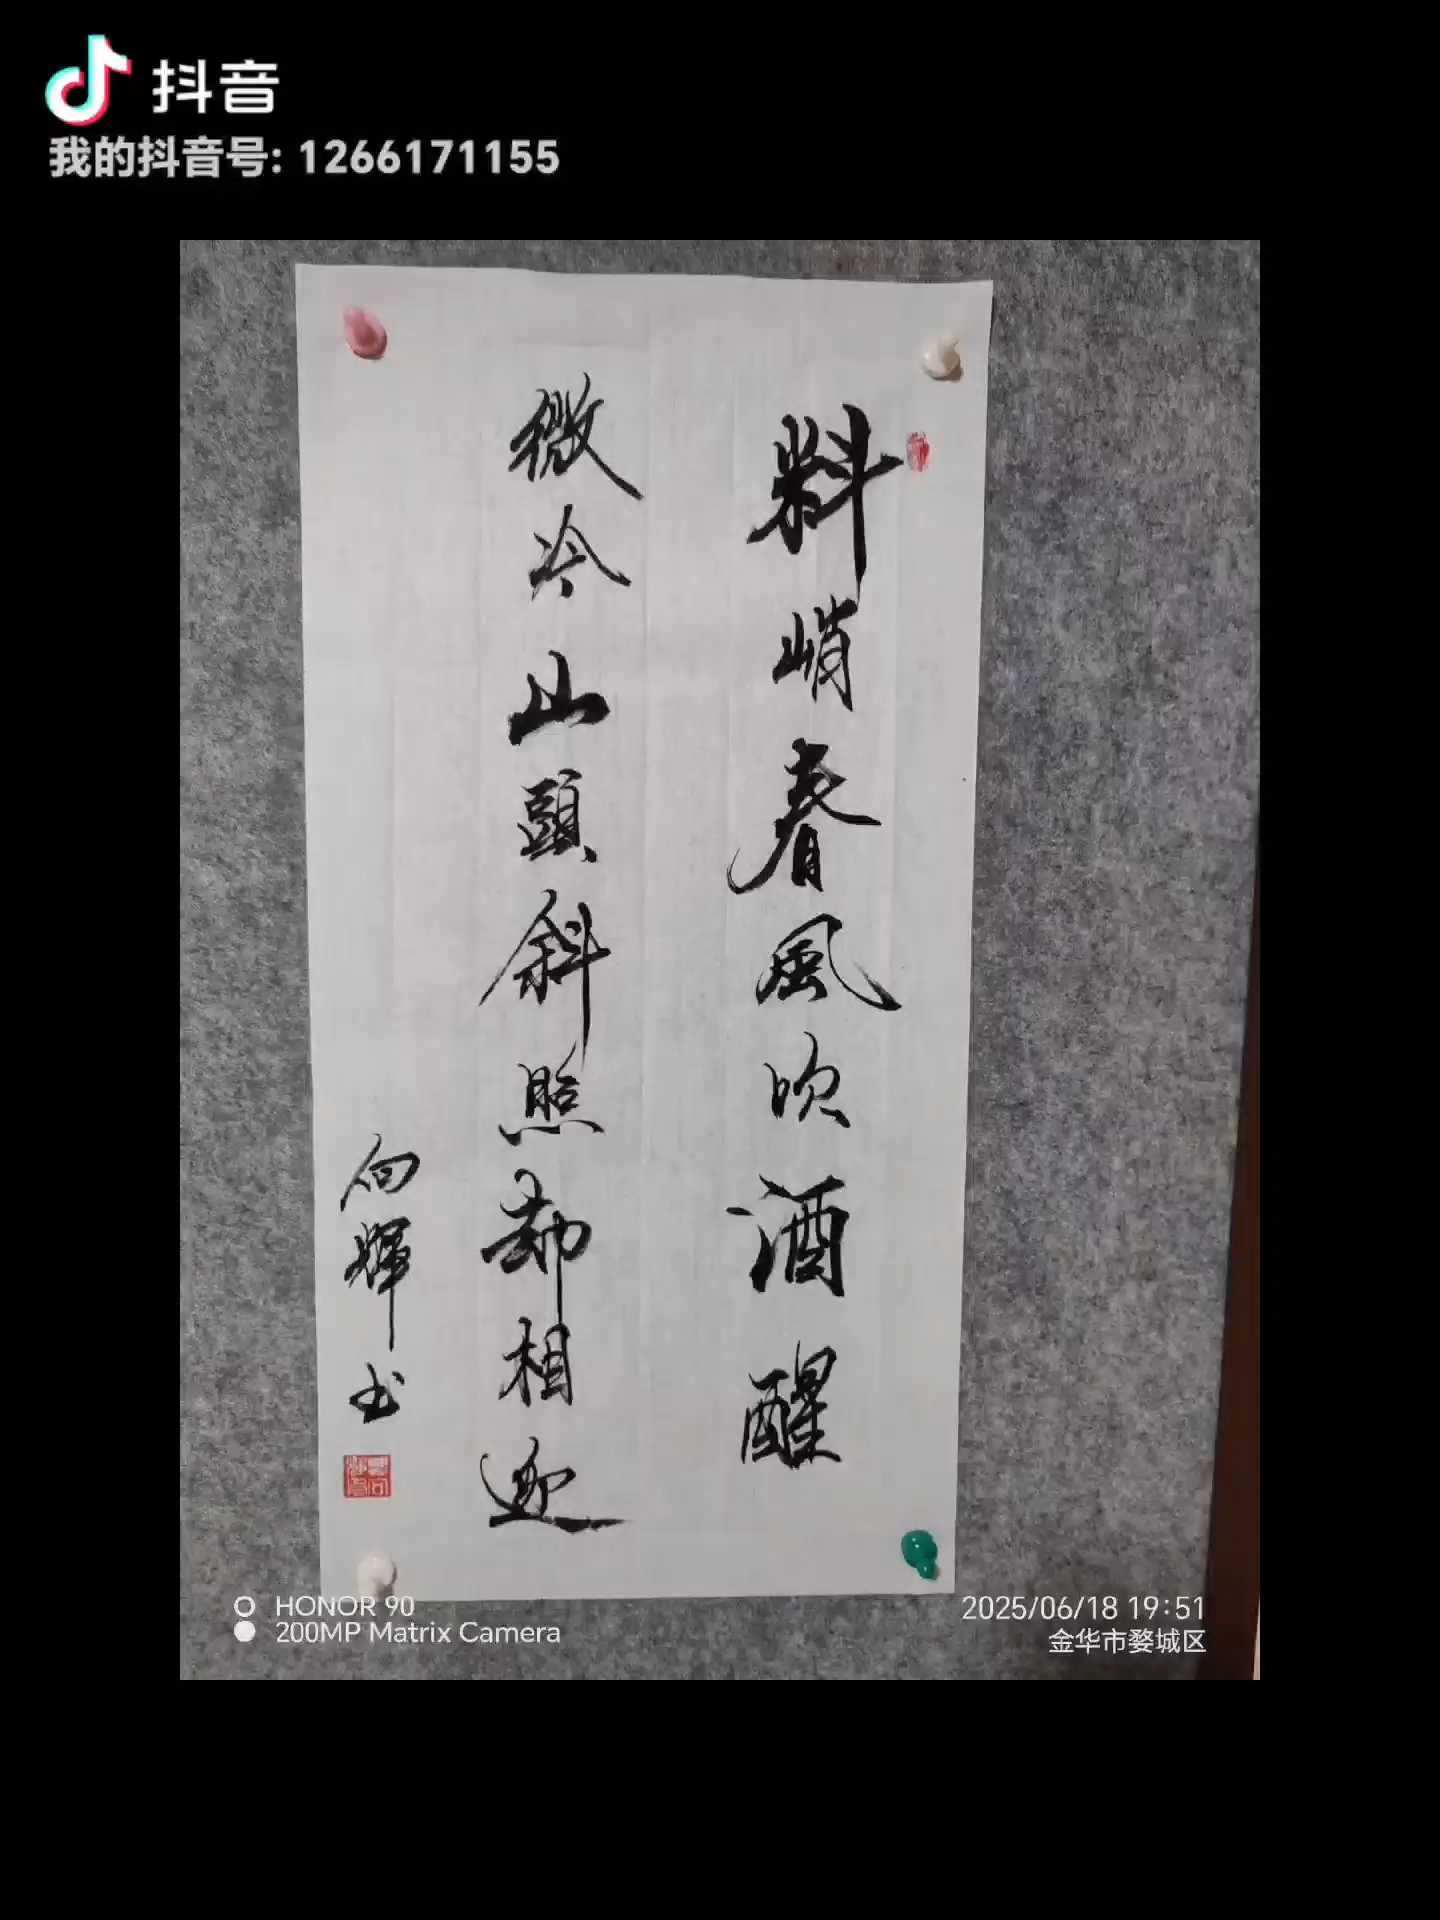 抖音
我的抖音号: 1266171155
料峭春風吹酒醒
微冷山頭斜照却相迎
向輝书
HONOR 90
200MP Matrix Camera
2025/06/18 19:51
金华市婺城区